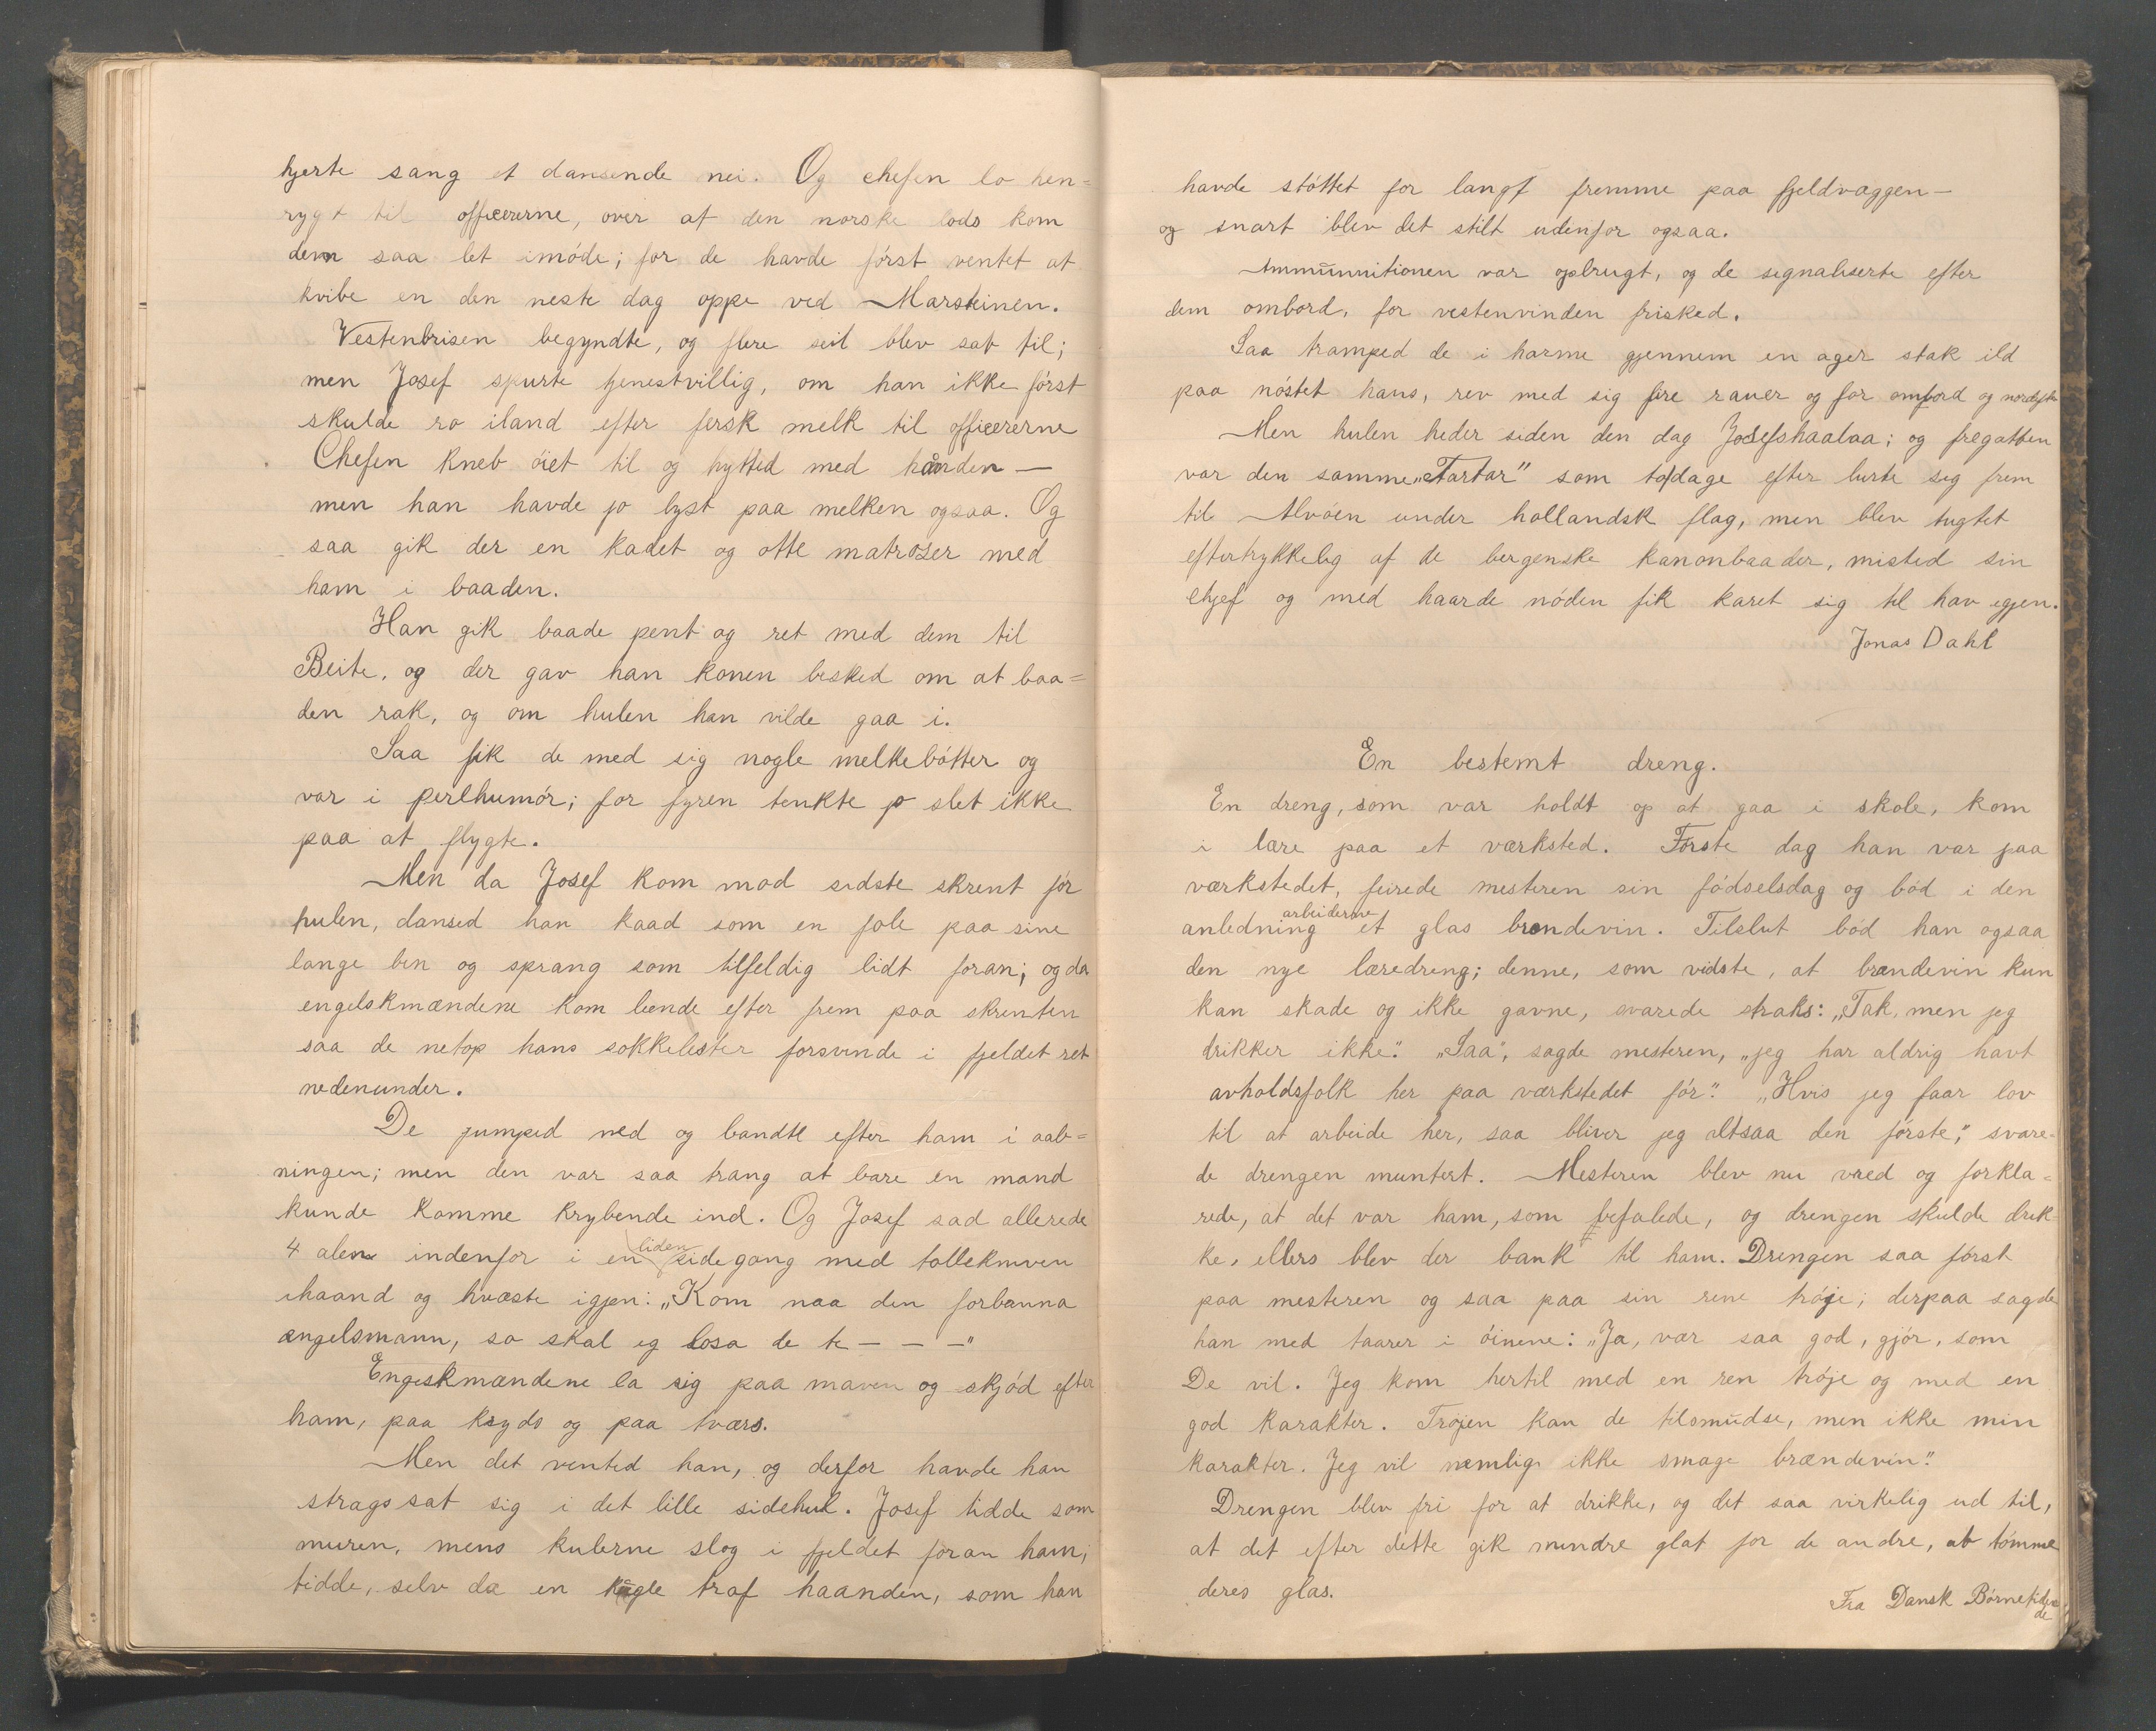 hjerte sang et dansende nei. Og chefen lo hen=
rygt til officererne, over at den norske lods kom
dem saa let imóde; for de havde fórst ventet at
kvibe en den neste dag oppe ved Marsteinen.
Vestenbrisen begyndte, og flere seil blev sat til;
men Josef spurte tjenestvillig, om han ikke fórst
skulde ro iland efter fersk melk til officererne
Chefen kneb óiet til og hytted med hånden —
men han havde jo lyst paa melken ogsaa. Og
saa gik der en kadet og otte matroser med
ham i baaden.
Han gik baade pent og ret med dem til
Beite, og der gav han konen besked om at baa=
den rak, og om hulen han vilde gaa i.
Saa fik de med sig nogle melkebótter og
var i perlhumór; for fyren tenkte jo slet ikke
paa at flygte.
Men da Josef kom mod sidste skrent fór
hulen, dansed han kaad som en fole paa sine
lange ben og sprang som tilfeldig lidt foran; og da
engelskmændene kom leende efter frem paa skrenten
saa de netop hans sokkelester forsvinde i fjeldet ret
nedenunder.
De jumped ned og bandte efter ham i aab=
ningen; men den var saa trang at bare en mand
kunde komme krybende ind. Og Josef sad allerede
4 alen indenfor i en liden sidegang med tollekniven
ihaand og hvæste igjen: „Kom naa den forbanna
ængelsmann, so skal eg losa de te — — —"
Engeskmændene la sig paa maven og skjód efter
ham, paa kryds og paa tværs.
Men det vented han, og derfor havde han
strags sat sig i det lille sidehul. Josef tidde som
muren, mens kulerne slog i fjeldet foran ham;
tidde, selv da en kugle traf haanden, som han
havde stóttet for langt fremme paa fjeldvæggen —
og snart blev det stilt udenfor ogsaa.
Ammunnitionen var opbrugt, og de signaliserte efter
dem ombord, for vestenvinden frisked.
Saa tramped de i harme gjennem en ager stak ild
paa nóstet hans, rev med sig fire sauer og for ombord og
Men hulen heder siden den dag Josefshaalaa; og fregatten
var den samme „Tartar" som to dage efter lurte sig frem
til Alvóen under hollandsk flag, men blev tugtet
eftertrykkelig af de bergenske kanonbaader, misted sin
chjef og med haarde nóden fik karet sig til hav igjen.
Jonas Dahl
En bestemt dreng.
En dreng, som var holdt op at gaa i skole, kom
i lære paa et værksted. Fórste dag han var paa
værkstedet, feirede mesteren sin fódselsdag og bód i den
anledning arbeiderne et glas brændevin. Tilslut bód han ogsaa
den nye læredreng; denne, som vidste, at brændevin kun
kan skade og ikke gavne, svarede straks: „Tak, men jeg
drikker ikke." „Saa", sagde mesteren, „jeg har aldrig havt
avholdsfolk her paa værkstedet fór." „Hvis jeg faar lov
til at arbeide her, saa bliver jeg altsaa den fórste," svare=
de drengen muntert. Mesteren blev nu vred og forkla=
rede, at det var ham, som befalede, og drengen skulde drik
ke, ellers blev der bank til ham. Drengen saa fórst
paa mesteren og saa paa sin rene tróje; derpaa sagde
han med taarer i óinene: „Ja, vær saa god, gjór, som
De vil. Jeg kom hertil med en ren tróje og med en
god karakter. Trójen kan de tilsmudse, men ikke min
karakter. Jeg vil nemlig ikke smage brændevin."
Drengen blev fri for at drikke, og det saa virkelig ud til,
at det efter dette gik mindre glat for de andre, at tómme
deres glas.
Fra Dansk Bórnetiden
de